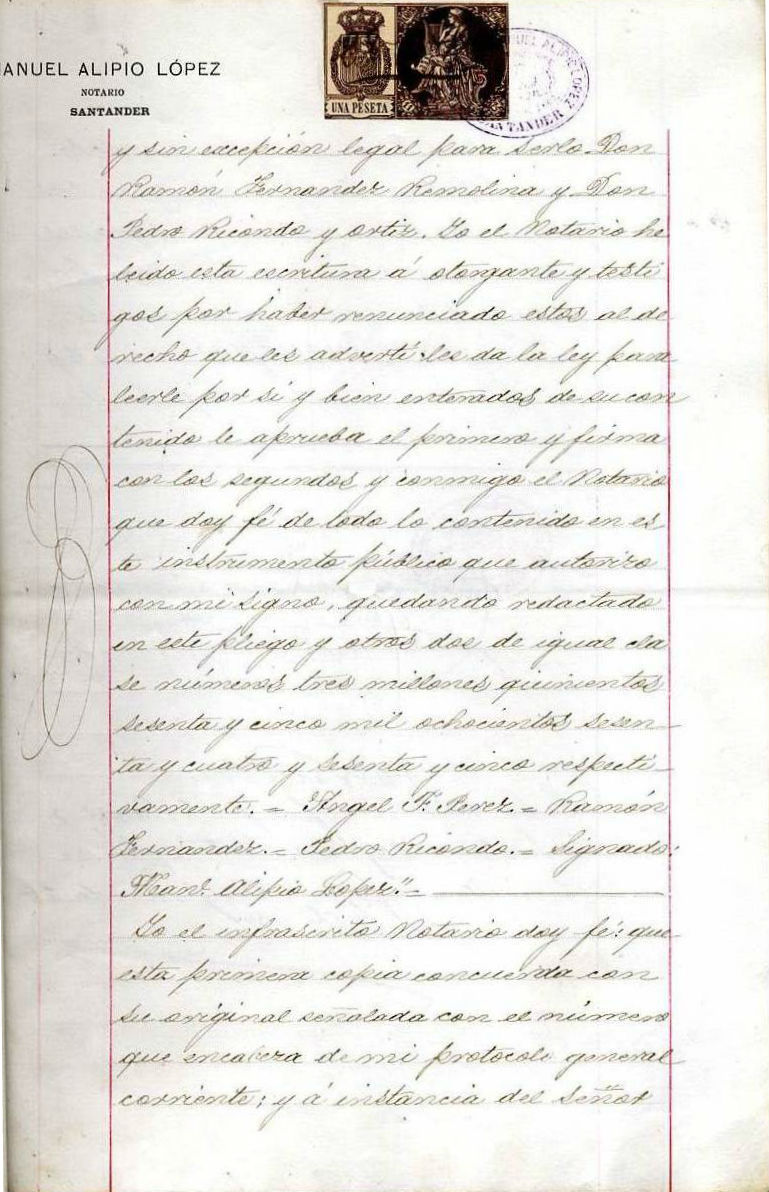 MANUEL ALIPIO LÓPEZ
NOTARIO
SANTANDER
UNA PESETA
MANUEL ALIPIO LOPEZ
SANTANDER
y sin excepción legal para serlo Don
Ramón Fernandez Remolina y Don
Pedro Ricondo y Ortiz. Yo el Notario he
leido esta escritura á otorgante y testi
gos por haber renunciado estos al de
recho que les advertí les da la ley para
leerle por sí y bien enterados de su con
tenido le aprueba el primero y firma
con los segundos y conmigo el Notario
que doy fé de todo lo contenido en es
te instrumento público que autorizo
con mi signo, quedando redactado
en este pliego y otros dos de igual cla
se números tres millones quinientos
sesenta y cinco mil ochocientos sesen-
ta y cuatro y sesenta y cinco respecti-
vamente. = Angel F. Perez. = Ramón
Fernandez. = Pedro Ricondo. = Signado:
Man.l Alipio Lopez." =
Yo el infrascrito Notario doy fé: que
esta primera copia concuerda con
su original señalada con el número
que encabeza de mi protocolo general
corriente; y á instancia del Señor